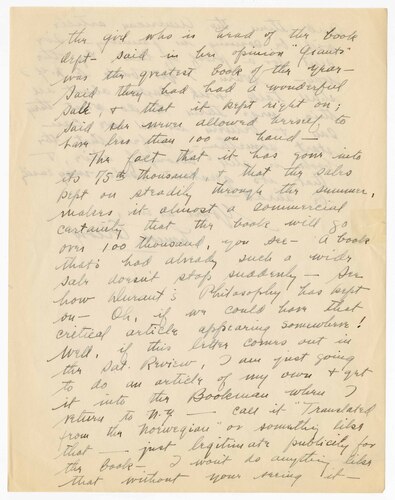 the girl who is head of the book
dept - said in her opinion "Giants"
was the greatest book of the year -
Said they had had a wonderful
sale, & that it kept right on;
said she never allowed herself to
have less than 100 on hand -
The fact that it has gone into
its 75th thousand, & that the sales
kept on steadily through the summer,
makes it almost a commercial
certainty that the book will go
over 100 thousand, you see - A book
that's had already such a wide
sale doesn't stop suddenly - See
how Durant's Philosophy has kept
on - Oh, if we could have that
critical article appearing somewhere!
Well, if this letter comes out in
the Sat. Review, I am just going
to do an article of my own & get
it into the Bookman when I
return to N.Y. - call it "Translated
from the Norwegian" or something like
that - just legitimate publicity for
the book - I won't do anything like
that without your seeing it -